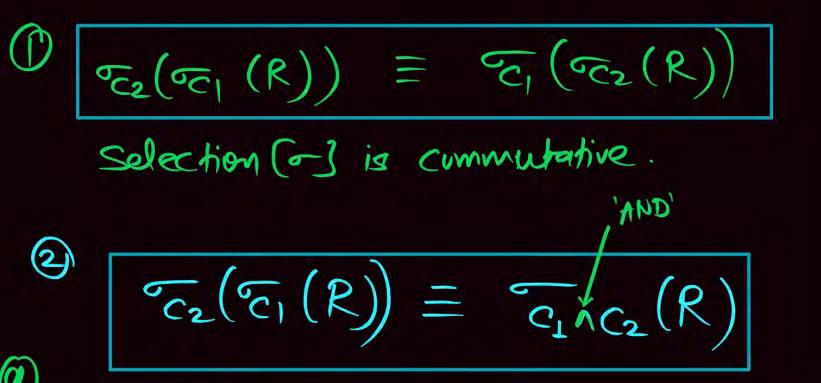 ① σC2(σC1(R)) ≡ σC1(σC2(R))
Selection [σ] is commutative.
'AND'
② σC2(σC1(R)) ≡ σC1∧C2(R)